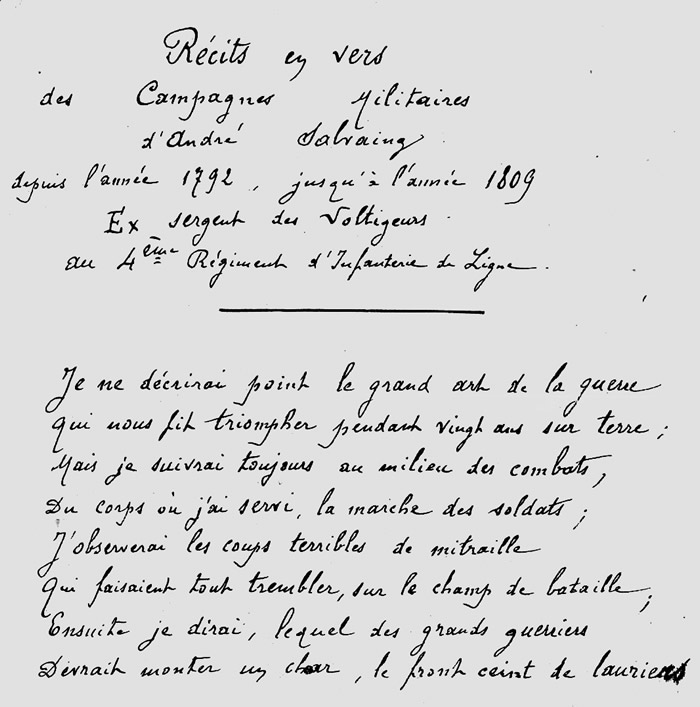 Récits en vers
des Campagnes Militaires
d'André Salvaing
depuis l'année 1792, jusqu'à l'année 1809
Ex sergent des Voltigeurs
au 4ème Régiment d'Infanterie de Ligne.
Je ne décrirai point le grand art de la guerre
qui nous fit triompher pendant vingt ans sur terre ;
Mais je suivrai toujours au milieu des combats,
Du corps où j'ai servi, la marche des soldats ;
J'observerai les coups terribles de mitraille
Qui faisaient tout trembler, sur le champ de bataille ;
Ensuite je dirai, lequel des grands guerriers
Devrait monter un char, le front ceint de lauriers